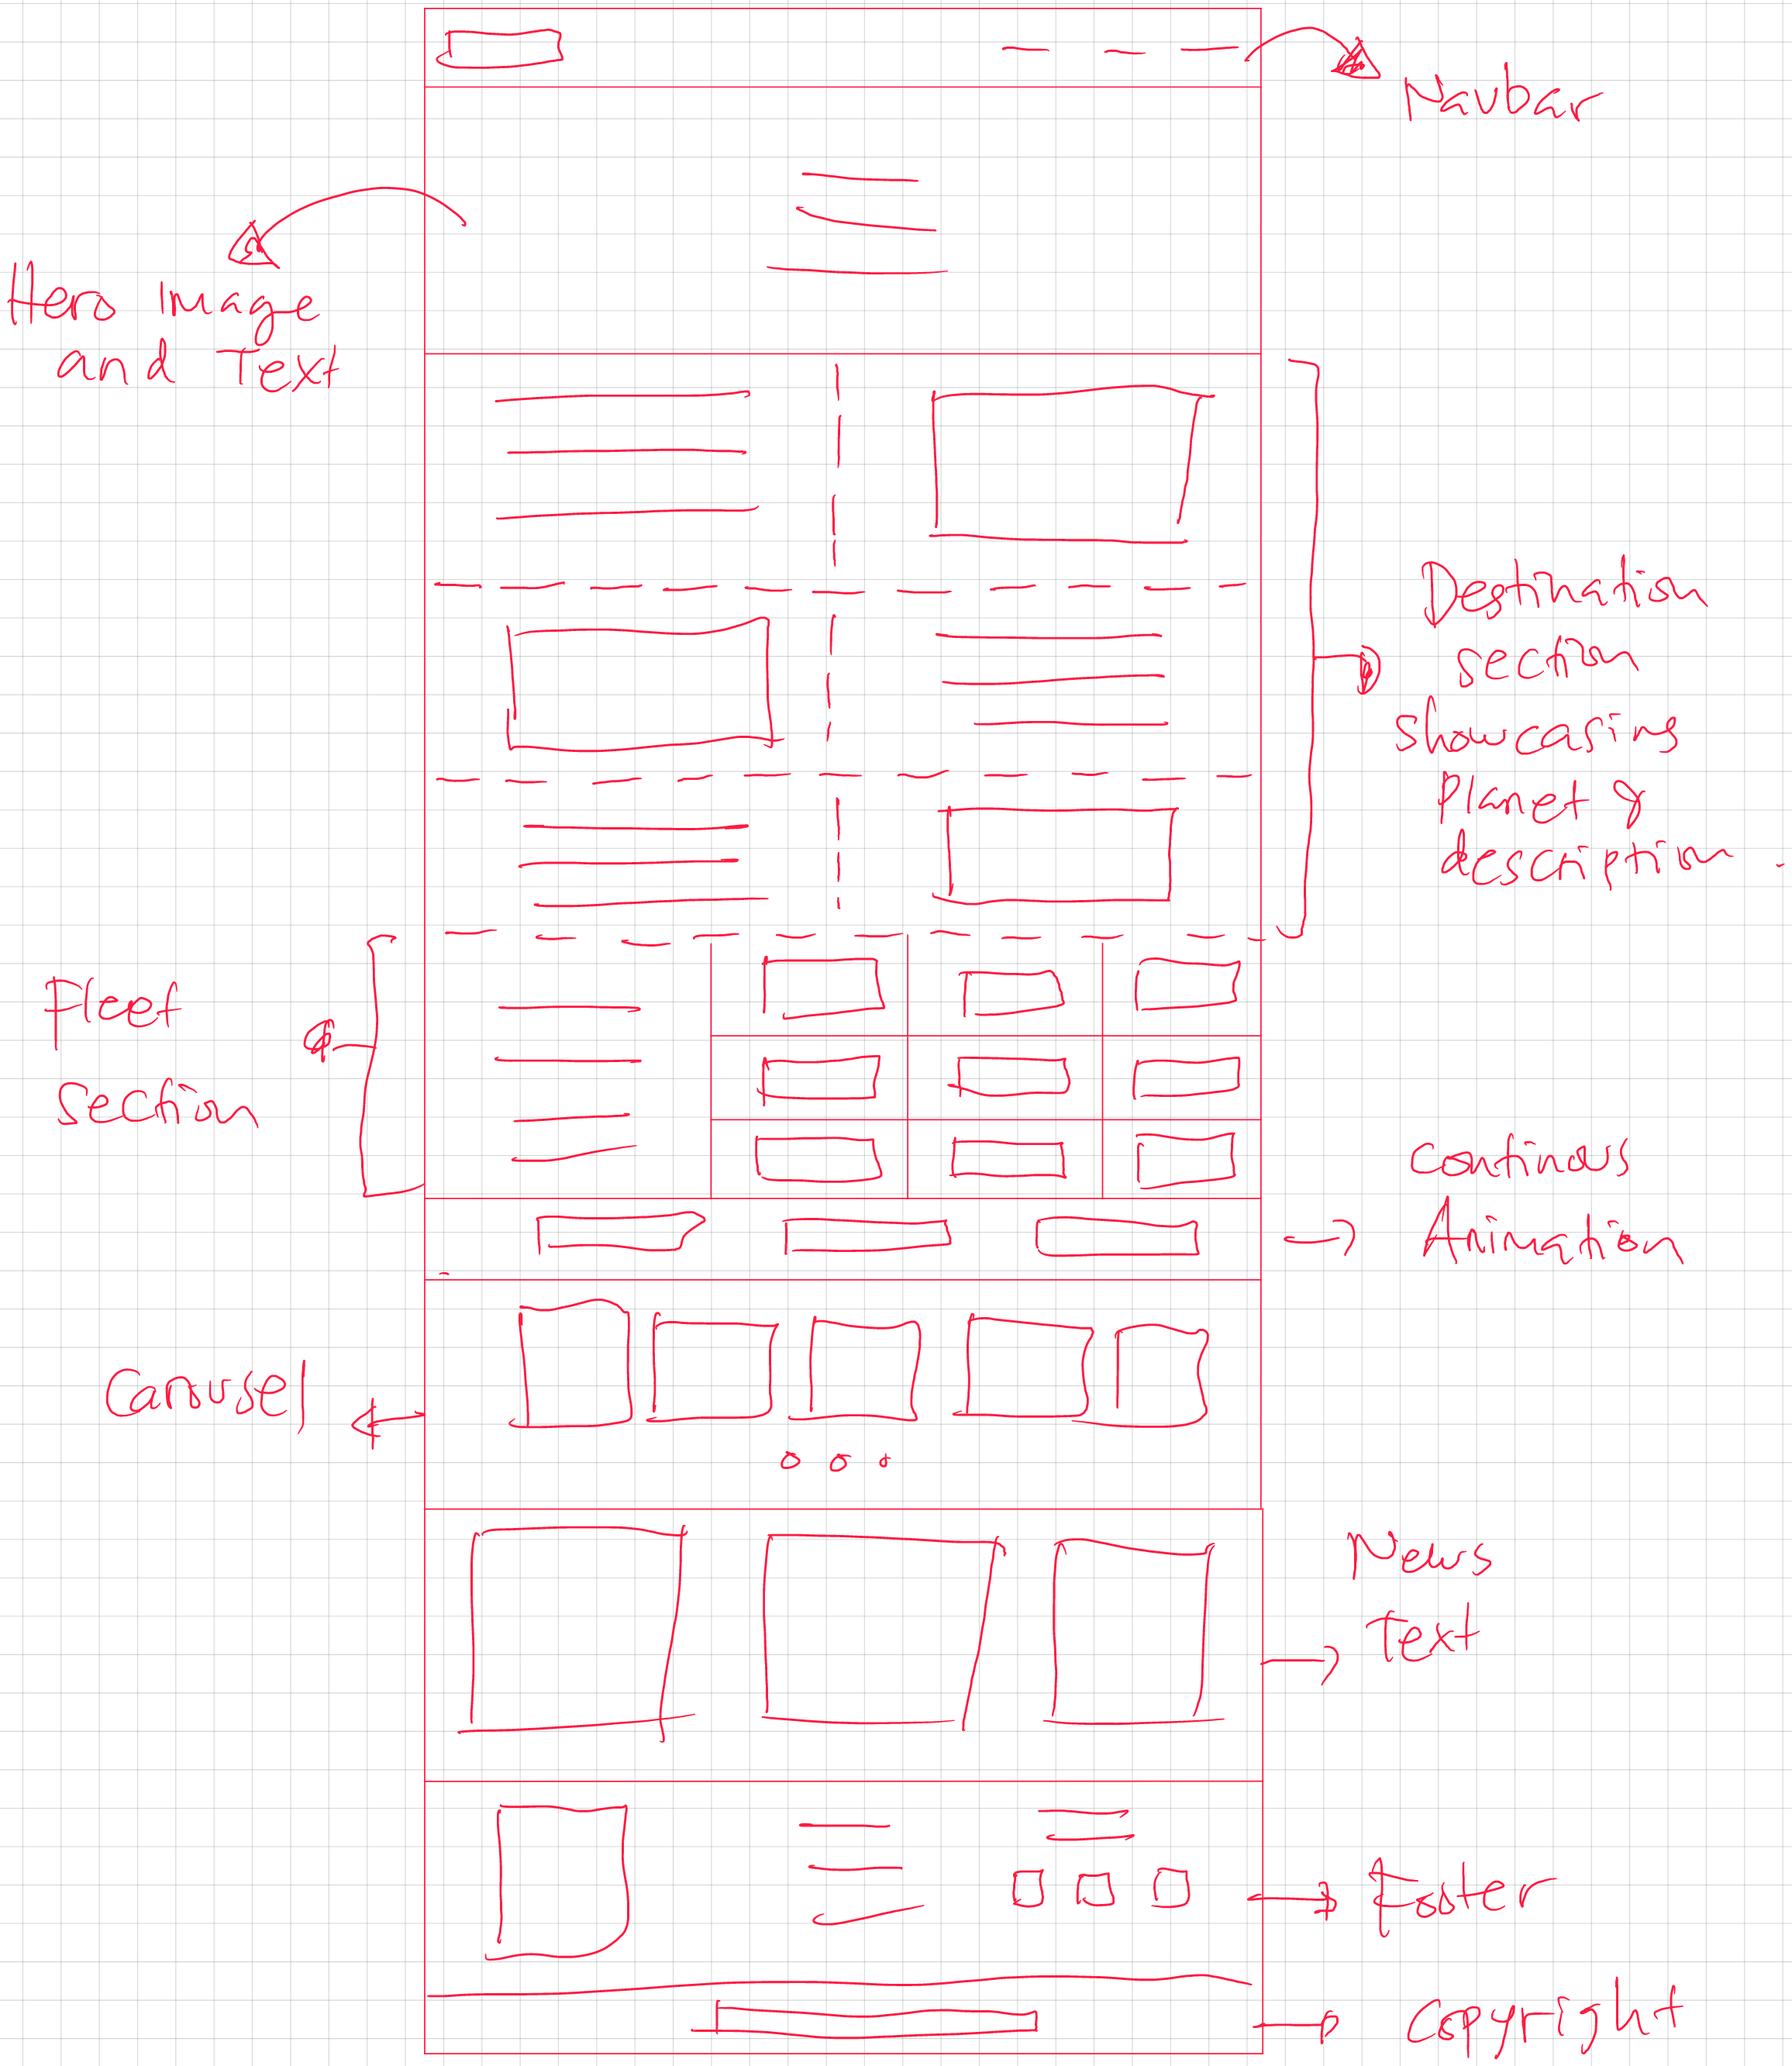 Navbar
Hero Image
and Text
Destination
section
showcasing
Planet &
description.
Fleet
section
Continous
Animation
Carousel
News
Text
Footer
Copyright